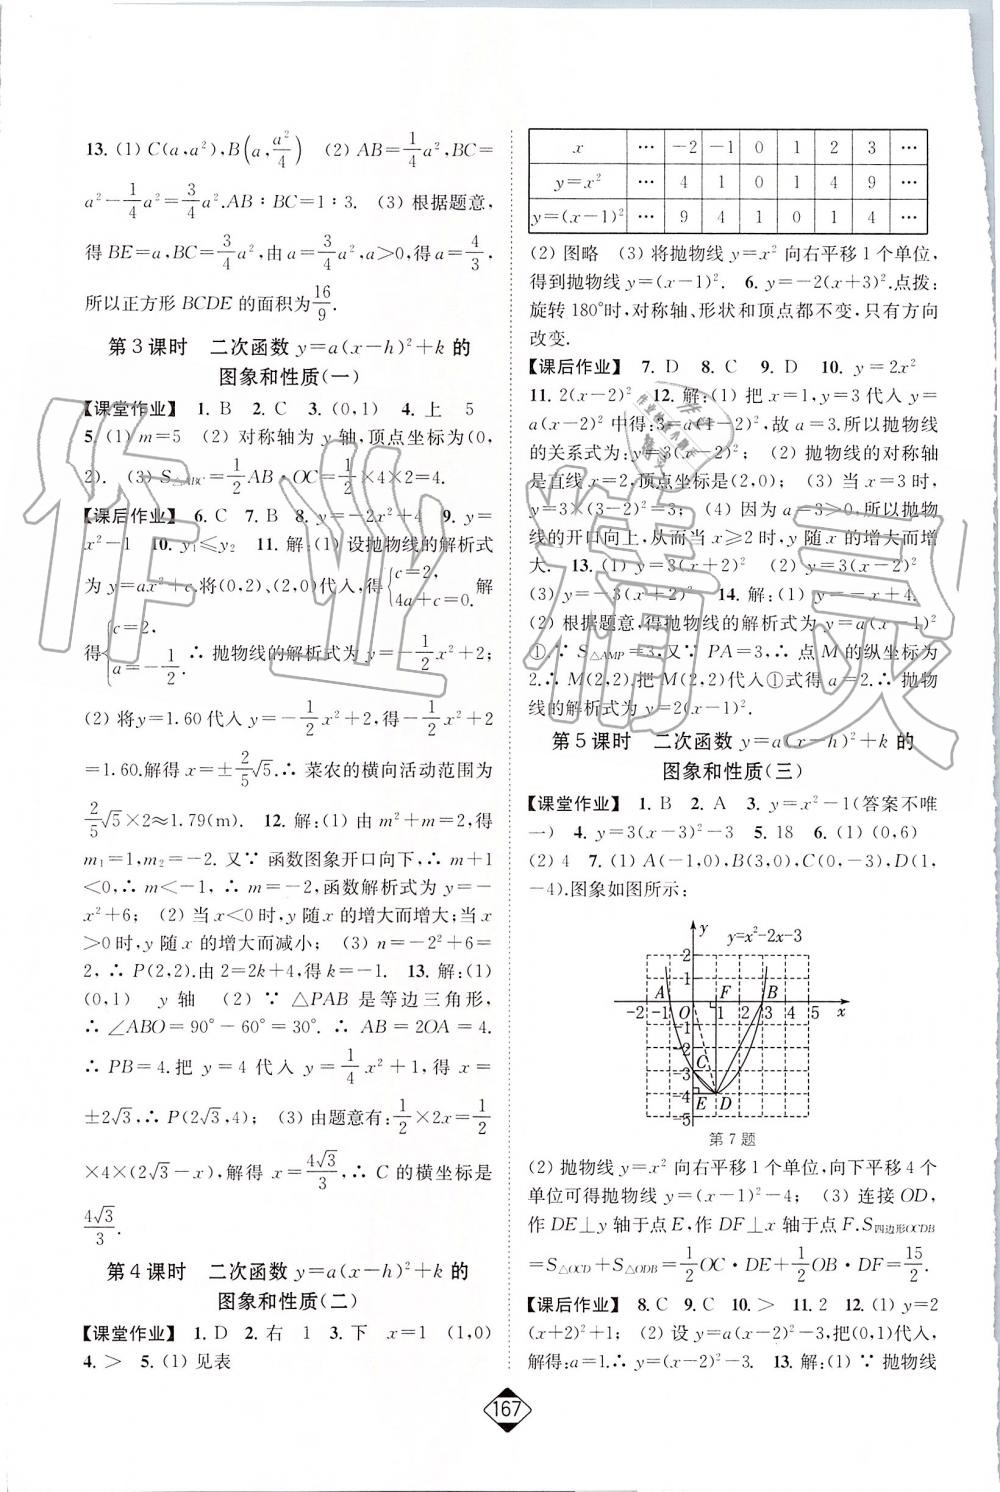 13. (1) C(a,a²),B(a,a²/4)　(2) AB=1/4a²,BC=
a²-1/4a²=3/4a².AB∶BC=1∶3.　(3) 根据题意,
得 BE=a,BC=3/4a²,由 a=3/4a²,a>0,得 a=4/3,
所以正方形 BCDE 的面积为16/9.
第3课时　二次函数 y=a(x-h)²+k 的
图象和性质(一)
【课堂作业】 1. B　2. C　3. (0,1)　4. 上　5
5. (1) m=5　(2) 对称轴为 y 轴,顶点坐标为(0,
2).　(3) S△ABC=1/2AB·OC=1/2×4×2=4.
【课后作业】 6. C　7. B　8. y=-2x²+4　9. y=
x²-1　10. y₁≤y₂　11. 解:(1) 设抛物线的解析式
为 y=ax²+c,将(0,2),(2,0)代入,得{c=2, 4a+c=0. 解
得{c=2, a=-1/2. ∴ 抛物线的解析式为 y=-1/2x²+2;
(2) 将y=1.60代入 y=-1/2x²+2,得-1/2x²+2
=1.60.解得 x=±2/5√5.∴ 菜农的横向活动范围为
2/5√5×2≈1.79(m).　12. 解:(1) 由 m²+m=2,得
m₁=1,m₂=-2. 又∵ 函数图象开口向下,∴ m+1
<0,∴ m<-1,∴ m=-2,函数解析式为 y=-
x²+6;　(2) 当 x<0时,y 随x 的增大而增大;当 x
>0时,y 随x 的增大而减小;　(3) n=-2²+6=
2,∴ P(2,2).由 2=2k+4,得 k=-1.　13. 解:(1)
(0,1)　y 轴　(2) ∵ △PAB 是等边三角形,
∴ ∠ABO=90°-60°=30°. ∴ AB=2OA=4.
∴ PB=4.把 y=4 代入 y=1/4x²+1,得 x=
±2√3,∴ P(2√3,4);　(3) 由题意有:1/2×2.x=1/2
×4×(2√3-x),解得 x=4√3/3,∴ C 的横坐标是
4√3/3.
第4课时　二次函数 y=a(x-h)²+k 的
图象和性质(二)
【课堂作业】 1. D　2. 右　1　3. 下　x=1　(1,0)
4. >　5. (1) 见表
x ⋯ -2 -1 0 1 2 3 ⋯
y=x² ⋯ 4 1 0 1 4 9 ⋯
y=(x-1)² ⋯ 9 4 1 0 1 4 ⋯
(2) 图略　(3) 将抛物线 y=x² 向右平移1个单位,
得到抛物线 y=(x-1)².　6. y=-2(x+3)².点拨:
旋转 180°时,对称轴、形状和顶点都不变,只有方向
改变.
【课后作业】 7. D　8. C　9. D　10. y=2x²
11. 2(x-2)²　12. 解:(1) 把 x=1,y=3代入 y=
a(x-2)² 中得:3=a(1-2)²,故 a=3.所以抛物线
的关系式为:y=3(x-2)²;　(2) 抛物线的对称轴
是直线 x=2,顶点坐标是(2,0);　(3) 当 x=3时,
y=3×(3-2)²=3;　(4) 因为 a=3>0,所以抛物
线的开口向上,从而当 x≥2时,y 随x 的增大而增
大.　13. (1) y=3(x+2)²　(2) y=3(x-2)²
(3) y=-3(x+2)²　14. 解:(1) y=-x+4.
(2) 根据题意,得抛物线的解析式为 y=a(x-1)²
①.∵ S△AMP=3,又∵ PA=3,∴ 点 M 的纵坐标为
2.∴ M(2,2).把 M(2,2)代入①式得 a=2.∴ 抛物
线的解析式为 y=2(x-1)².
第5课时　二次函数 y=a(x-h)²+k 的
图象和性质(三)
【课堂作业】 1. B　2. A　3. y=x²-1(答案不唯
一)　4. y=3(x-3)²-3　5. 18　6. (1) (0,6)
(2) 4　7. (1) A(-1,0),B(3,0),C(0,-3),D(1,
-4).图象如图所示:
y y=x²-2x-3
2
1
A F B
-2 -1 O 1 2 3 4 5 x
-1
-2
C
-3
-4 E D
-5
第7题
(2) 抛物线 y=x² 向右平移1个单位,向下平移4个
单位可得抛物线 y=(x-1)²-4;　(3) 连接 OD,
作 DE⊥y 轴于点E,作 DF⊥x 轴于点 F.S四边形OCDB
=S△OCD+S△ODB=1/2OC·DE+1/2OB·DF=15/2.
【课后作业】 8. C　9. C　10. >　11. 2　12. (1) y=2
(x+2)²+1;　(2) 设 y=a(x-2)²-3,把(0,1)代入,
解得:a=1.∴ y=(x-2)²-3.　13. 解:(1) ∵ 抛物线
167
作业精灵